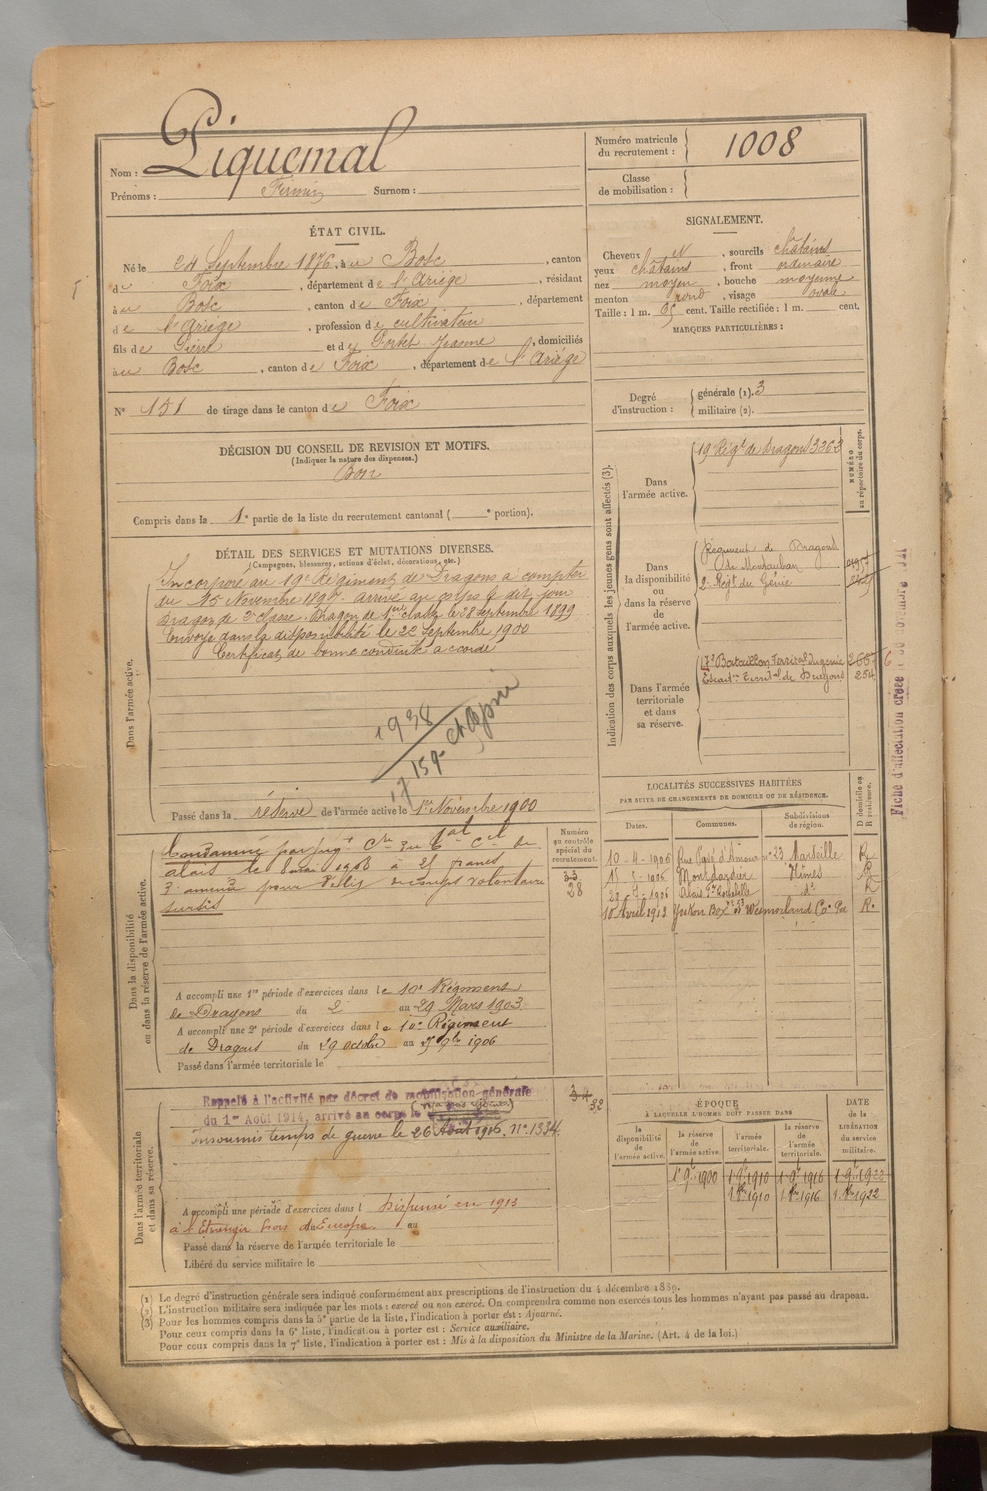 Nom : Piquemal
Prénoms : Firmin Surnom :
Numéro matricule du recrutement : 1008
Classe de mobilisation :
ÉTAT CIVIL.
Né le 24 Septembre 1876, à u Bosc, canton
de Foix, département de l'Ariège, résidant
à u Bosc, canton de Foix, département
de l'Ariège, profession de cultivateur
fils de Pierre et de Portet Jeanne, domiciliés
à u Bosc, canton de Foix, département de l'Ariège
N° 151 de tirage dans le canton de Foix
SIGNALEMENT.
Cheveux et, sourcils châtains
yeux châtains, front ordinaire
nez moyen, bouche moyenne
menton rond, visage ovale
Taille : 1 m. 65 cent. Taille rectifiée : 1 m. cent.
MARQUES PARTICULIÈRES :
Degré d'instruction : générale (1). 3
militaire (2).
DÉCISION DU CONSEIL DE REVISION ET MOTIFS.
(Indiquer la nature des dispenses.)
Bon
Compris dans la 1e partie de la liste du recrutement cantonal ( e portion).
DÉTAIL DES SERVICES ET MUTATIONS DIVERSES.
(Campagnes, blessures, actions d'éclat, décorations, etc.)
Dans l'armée active.
Incorporé au 19e Régiment de Dragons à compter
du 15 Novembre 1897. arrivé au corps le dit jour
Dragon de 2e classe. Dragon de 1ère classe le 28 septembre 1899
Envoyé dans la disponibilité le 22 septembre 1900
Certificat de bonne conduite accordé
1938
17 159
Passé dans la réserve de l'armée active le 1er Novembre 1900
Indication des corps auxquels les jeunes gens sont affectés (3).
NUMÉRO au répertoire du corps.
Dans l'armée active.
19 Régt de Dragons 3363
Dans la disponibilité ou dans la réserve de l'armée active.
Régiment de Dragons
de Montauban
2e Régt du Génie
Dans l'armée territoriale et dans sa réserve.
17e Bataillon Territal du génie
Escadon Territal de Dragons 254
Fiche d'affectation créée
LOCALITÉS SUCCESSIVES HABITÉES
PAR SUITE DE CHANGEMENTS DE DOMICILE OU DE RÉSIDENCE.
Dates. Communes. Subdivisions de région. D domicile ou R résidence.
10-4-1906 Rue Payé d'Amour n° 23 Marseille R
15-5-1906 Montdardier Nîmes R
29-7-1906 Alais Pte Rochebelle do R
10 Avril 1912 Yukon Box n° 53 Wesmorland Co. Pa R.
Dans la disponibilité ou dans la réserve de l'armée active.
Numéro au contrôle spécial du recrutement.
33
28
Condamné par jugt Con du Tal Cel de
alais le mai 1908 à 25 francs
d'amende pour délit de coups volontaires
sursis
A accompli une 1re période d'exercices dans le 10e Régiment
de Dragons du 2 au 29 Mars 1903
A accompli une 2e période d'exercices dans le 10e Régiment
de Dragons du 29 octobre au 9bre 1906
Passé dans l'armée territoriale le
Dans l'armée territoriale et dans sa réserve.
Rappelé à l'activité par décret de mobilisation générale
du 1er Août 1914, arrivé au corps le
Insoumis temps de guerre le 26 Août 1916. N° 1334
34
32
A accompli une période d'exercices dans l Dispensé en 1913
à l'Etranger hors d'Europe. au
Passé dans la réserve de l'armée territoriale le
Libéré du service militaire le
ÉPOQUE
À LAQUELLE L'HOMME DOIT PASSER DANS
la disponibilité de l'armée active. la réserve de l'armée active. l'armée territoriale. la réserve de l'armée territoriale. DATE de la LIBÉRATION du service militaire.
1 9bre 1900 1 9bre 1910 1 9bre 1916 1 9bre 1922
1 8bre 1910 1 8bre 1916 1 8bre 1922
(1) Le degré d'instruction générale sera indiqué conformément aux prescriptions de l'instruction du 4 décembre 1889.
(2) L'instruction militaire sera indiquée par les mots : exercé ou non exercé. On comprendra comme non exercés tous les hommes n'ayant pas passé au drapeau.
(3) Pour les hommes compris dans la 5e partie de la liste, l'indication à porter est : Ajourné.
Pour ceux compris dans la 6e liste, l'indication à porter est : Service auxiliaire.
Pour ceux compris dans la 7e liste, l'indication à porter est : Mis à la disposition du Ministre de la Marine. (Art. 4 de la loi.)